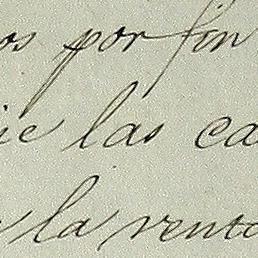 os por fin
ie las ca
la venta